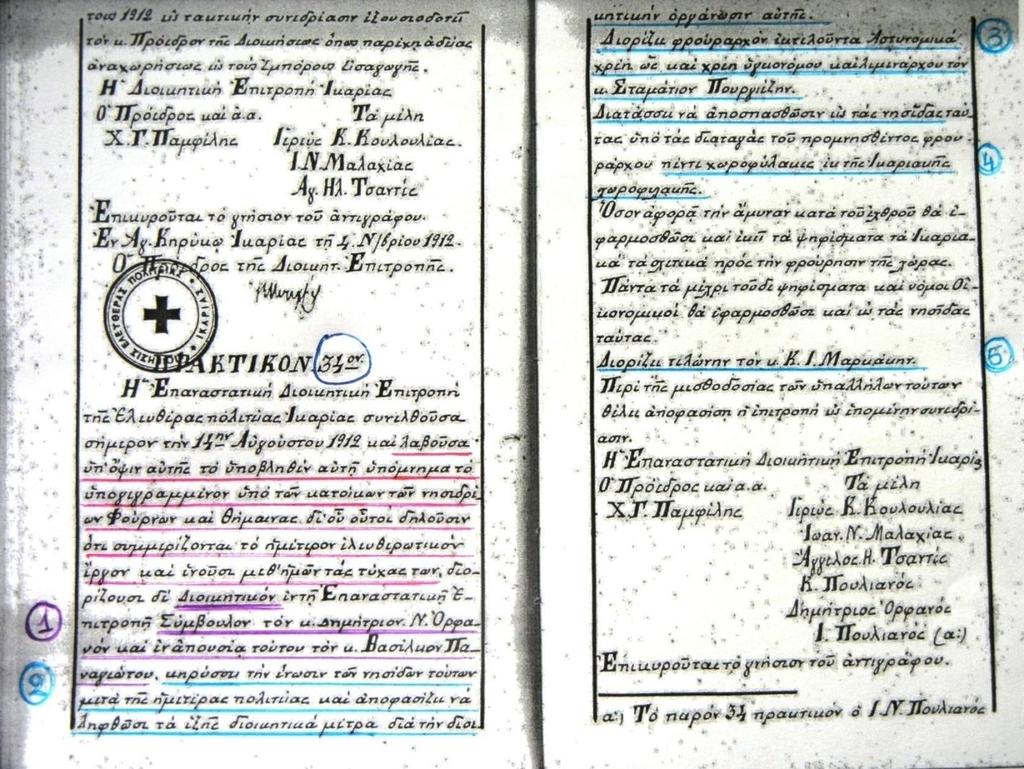 τους 1912 εἰς τακτικήν συνεδρίασιν ἐξουσιοδοτεῖ
τόν κ. Πρόεδρον τῆς Διοικήσεως ὅπως παρέχῃ ἀδείας
ἀναχωρήσεως εἰς τούς Ἐμπόρους Εἰσαγωγῆς.
Ἡ Διοικητική Ἐπιτροπή Ἰκαρίας
Ὁ Πρόεδρος καί ἀ.α. Τά μέλη
Χ.Γ. Παμφίλης Ἱερεύς Κ. Κουλουλίας.
Ι.Ν. Μαλαχίας
Ἀγ. Ἠλ. Τσαντές
Ἐπικυροῦται τό γνήσιον τοῦ ἀντιγράφου.
Ἐν Ἁγ. Κηρύκῳ Ἰκαρίας τῇ 4 Ν/βρίου 1912.
Ὁ Πρόεδρος τῆς Διοικητ. Ἐπιτροπῆς.
ΕΛΕΥΘΕΡΑΣ ΠΟΛΙΤΕΙΑΣ ΙΚΑΡΙΑΣ
ΠΡΑΚΤΙΚΟΝ 34ον.
Ἡ Ἐπαναστατική Διοικητική Ἐπιτροπή
τῆς Ἐλευθέρας πολιτείας Ἰκαρίας συνελθοῦσα
σήμερον τήν 14ην Αὐγούστου 1912 καί λαβοῦσα
ὑπ' ὄψιν αὐτῆς τό ὑποβληθέν αὐτῇ ὑπόμνημα τό
ὑπογεγραμμένον ὑπό τῶν κατοίκων τῶν νησιδρί-
ων Φούρνων καί Θήμαινας δι' οὗ οὗτοι δηλοῦσιν
ὅτι συμμερίζονται τό ἡμέτερον ἐλευθερωτικόν
ἔργον καί ἑνοῦσι μεθ' ἡμῶν τάς τύχας των, διο-
ρίζουσι δέ Διοικητικόν ἐν τῇ Ἐπαναστατικῇ Ἐ-
πιτροπῇ Σύμβουλον τόν κ. Δημήτριον Ν. Ὀρφα-
νόν καί ἐν ἀπουσίᾳ τούτου τόν κ. Βασίλειον Πα-
ναγιώτου, κηρύσσει τήν ἕνωσιν τῶν νησίδων τούτων
μετά τῆς ἡμετέρας πολιτείας καί ἀποφασίζει νά
ληφθῶσι τά ἑξῆς διοικητικά μέτρα διά τήν διοι
1
2
κητικήν ὀργάνωσιν αὐτῆς.
Διορίζει φρούραρχον ἐκτελοῦντα Ἀστυνομικά
χρέη ὡς καί χρέη ὑγειονόμου καί λιμενάρχου τόν
κ. Σταμάτιον Πουργιέζην.
Διατάσσει νά ἀποσπασθῶσιν εἰς τάς νησῖδας ταύ-
τας ὑπό τάς διαταγάς τοῦ προμνησθέντος φρου
ράρχου πέντε χωροφύλακες ἐκ τῆς Ἰκαριακῆς
χωροφυλακῆς.
Ὅσον ἀφορᾷ τήν ἄμυναν κατά τοῦ ἐχθροῦ θά ἐ-
φαρμοσθῶσι καί ἐκεῖ τά ψηφίσματα τά Ἰκαρια-
κά τά σχετικά πρός τήν φρούρησιν τῆς χώρας.
Πάντα τά μέχρι τοῦδε ψηφίσματα καί νόμοι Οἰ-
κονομικοί θά ἐφαρμοσθῶσι καί εἰς τάς νησῖδας
ταύτας.
Διορίζει τελώνην τόν κ. Κ. Ι. Μαρκάκην.
Περί τῆς μισθοδοσίας τῶν ὑπαλλήλων τούτων
θέλει ἀποφασίσῃ ἡ ἐπιτροπή εἰς ἑπομένην συνεδρί-
ασιν.
Ἡ Ἐπαναστατική Διοικητική Ἐπιτροπή Ἰκαρίας
Ὁ Πρόεδρος καί ἀ.α. Τά μέλη
Χ.Γ. Παμφίλης Ἱερεύς Κ. Κουλουλίας
Ἰωαν. Ν. Μαλαχίας.
Ἄγγελος Η. Τσαντές
Κ. Πουλιανός
Δημήτριος Ὀρφανός
Ι. Πουλιανός (α:)
Ἐπικυροῦται τό γνήσιον τοῦ ἀντιγράφου.
α:) Τό παρόν 34 πρακτικόν ὁ Ι.Ν. Πουλιανός
3
4
5